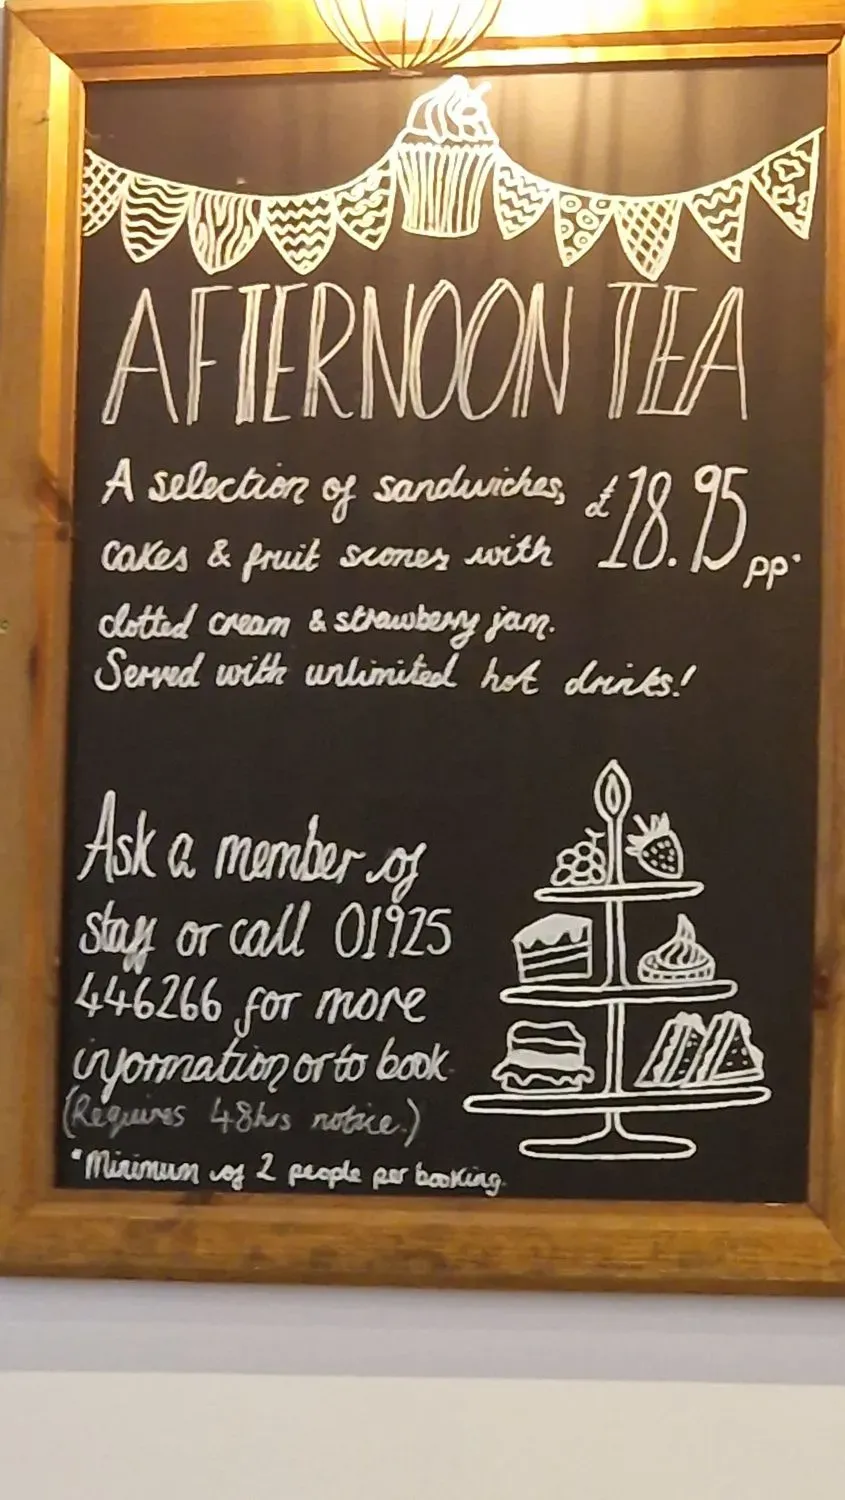 AFTERNOON TEA
A selection of sandwiches, £18.95 pp*
cakes & fruit scones with
clotted cream & strawberry jam.
Served with unlimited hot drinks!
Ask a member of
staff or call 01925
446266 for more
information or to book.
(Requires 48hrs notice.)
*Minimum of 2 people per booking.